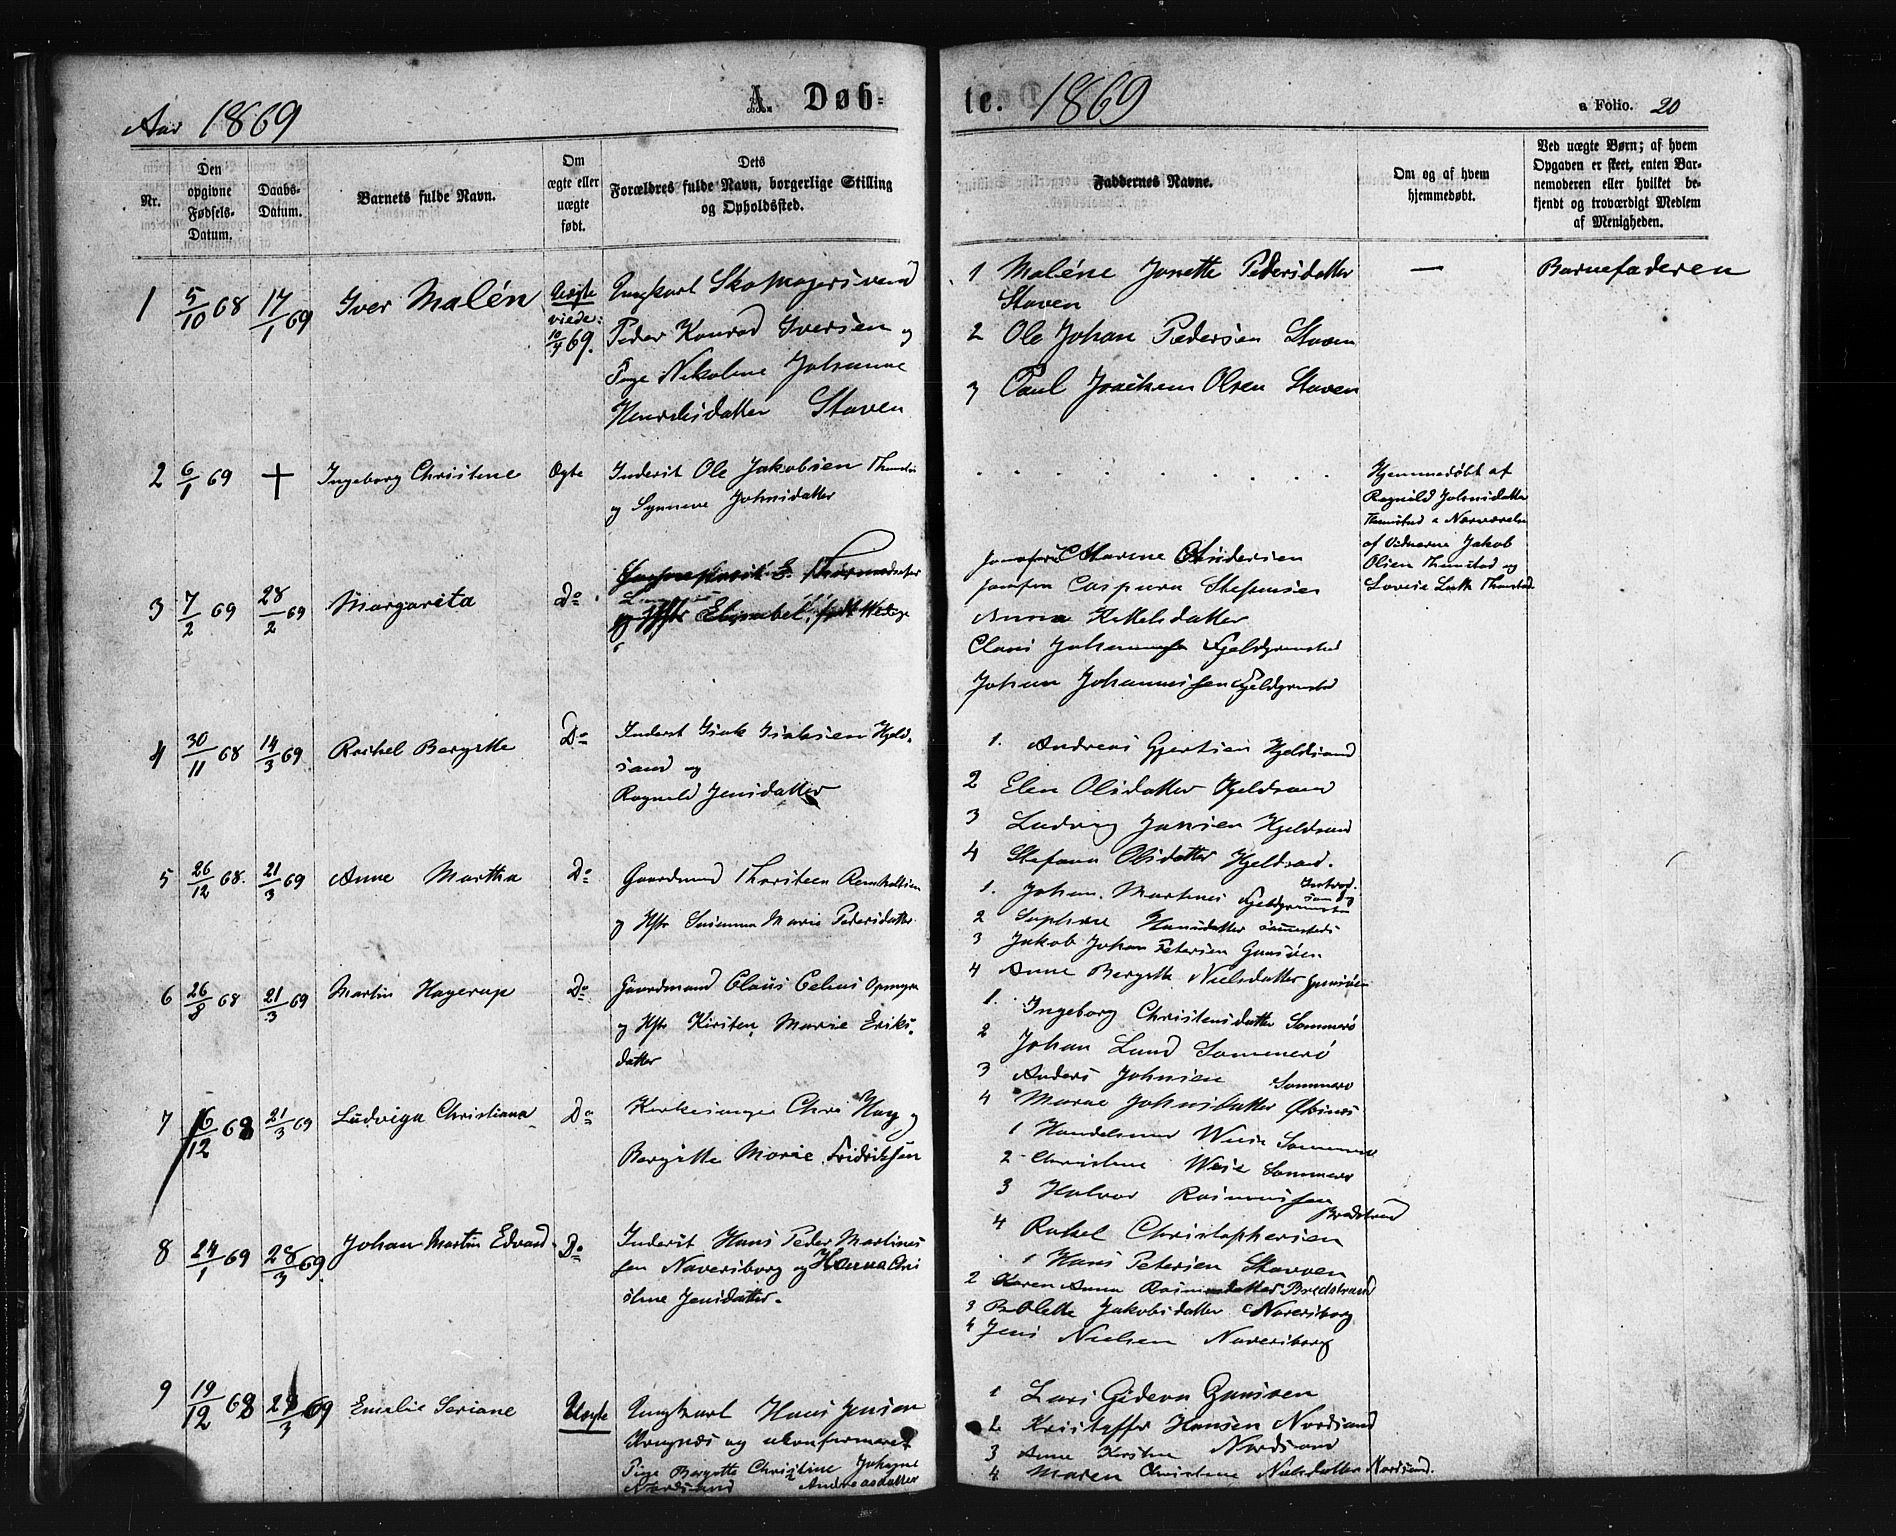 Aar 1869
A. Døb-
te. 1869
a Folio. 20
Nr.
Den opgivne Fødsels-Datum.
Daabs-Datum.
Barnets fulde Navn.
Om ægte eller uægte født.
Dets Forældres fulde Navn, borgerlige Stilling og Opholdssted.
Faddernes Navne.
Om og af hvem hjemmedøbt.
Ved uægte Børn; af hvem Opgaven er skeet, enten Barnemoderen eller hvilket bekjendt og troværdigt Medlem af Menigheden.
1 5/10 68 17/1 69 Iver Malén Uægte viede: 10/4 69.
Ungkarl Skomagersvend
Peder Konrad Iversen og
Pige Nikoline Johanne
Henriksdatter Staven
1 Maléne Jonette Pedersdatter
Staven
2 Ole Johan Pedersen Staven
3 Paul Joachim Olsen Staven
—
Barnefaderen
2 6/1 69 † Ingeborg Christine Ægte
Inderst Ole Jakobsen
og Synneve Johnsdatter
Hjemmedøbt af
Ragnild Johnsdatter
Thunstad i Nærværelse
af Vidnerne Jakob
Olsen Thunstad og
3 7/2 69 28/2 69 Margarita Do
Elisabet, født
Jomfru Marine Andersen
Jomfru Caspara Stefensen
Anna Kettelsdatter
Claus Johannesen Fjeldgrunstad
Johan Johannessen Fjeldgrunstad
4 30/11 68 14/3 69 Rachel Bergitte Do
Inderst Isak Isaksen Hjeld-
sand og
Ragnild Jensdatter
1. Andreas Gjertsen Hjeldsand
2 Elen Olsdatter Hjeldsand
3 Ludvig Jansen Hjeldsand
4 Stefana Olsdatter Hjeldsand.
5 26/12 68. 21/3 69 Anne Martha Do
Gaardmand Thorsteen Reinholtsen
og Hstr Susanna Marie Pedersdatter
1. Johan Martines Fjeldgrunstad
2 Sophie Hansdatter sammesteds
3 Jakob Johan Petersen Gunsøen
4 Anne Bergitte Nielsdatter Gunsøen
6 26/8 68 21/3 69 Martin Hagerup Do
Gaardmand Claus Celius
og Hstr Kirsten Marie Eriks-
datter
1. Ingeborg Christensdatter Sommerø
2 Johan Lund Sommerø
3 Anders Johnsen Sommerø
4 Maren Johnsdatter
7 16/12 68 21/3 69 Ludviga Christiana Do
Kirkesanger Chr. Hag og
Bergitte Marie Fridriksen
1 Handelsmand Weise Sommerø
2 Christine Weise Sommerø
3 Halvor Rasmussen
Bredstrand
4 Rakel Christophersen
8 24/1 69 28/3 69. Johan Martin Edvard Do
Inderst Hans Peder Martines
sen Naversborg og Hanna Chri
stine Jensdatter.
1 Hans Petersen Skoven
2 Karen Anna Rasmusdatter Bredstrand
3 Bolette Jakobsdatter Naversborg
4 Jens Nielsen Naversborg
9 19/12 68 29/3 69 Emelie Seriane Uægte
Ungkarl Hans Jensen
og ukonfirmeret
Pige Bergitte Christine Johanne
Nordsand Andreasdatter
1 Lars Gideon Gunsøen
2 Kristoffer Hansen Nordsand
3 Anne Kirstine Nordsand
4 Maren Christine Nielsdatter Nordsand.